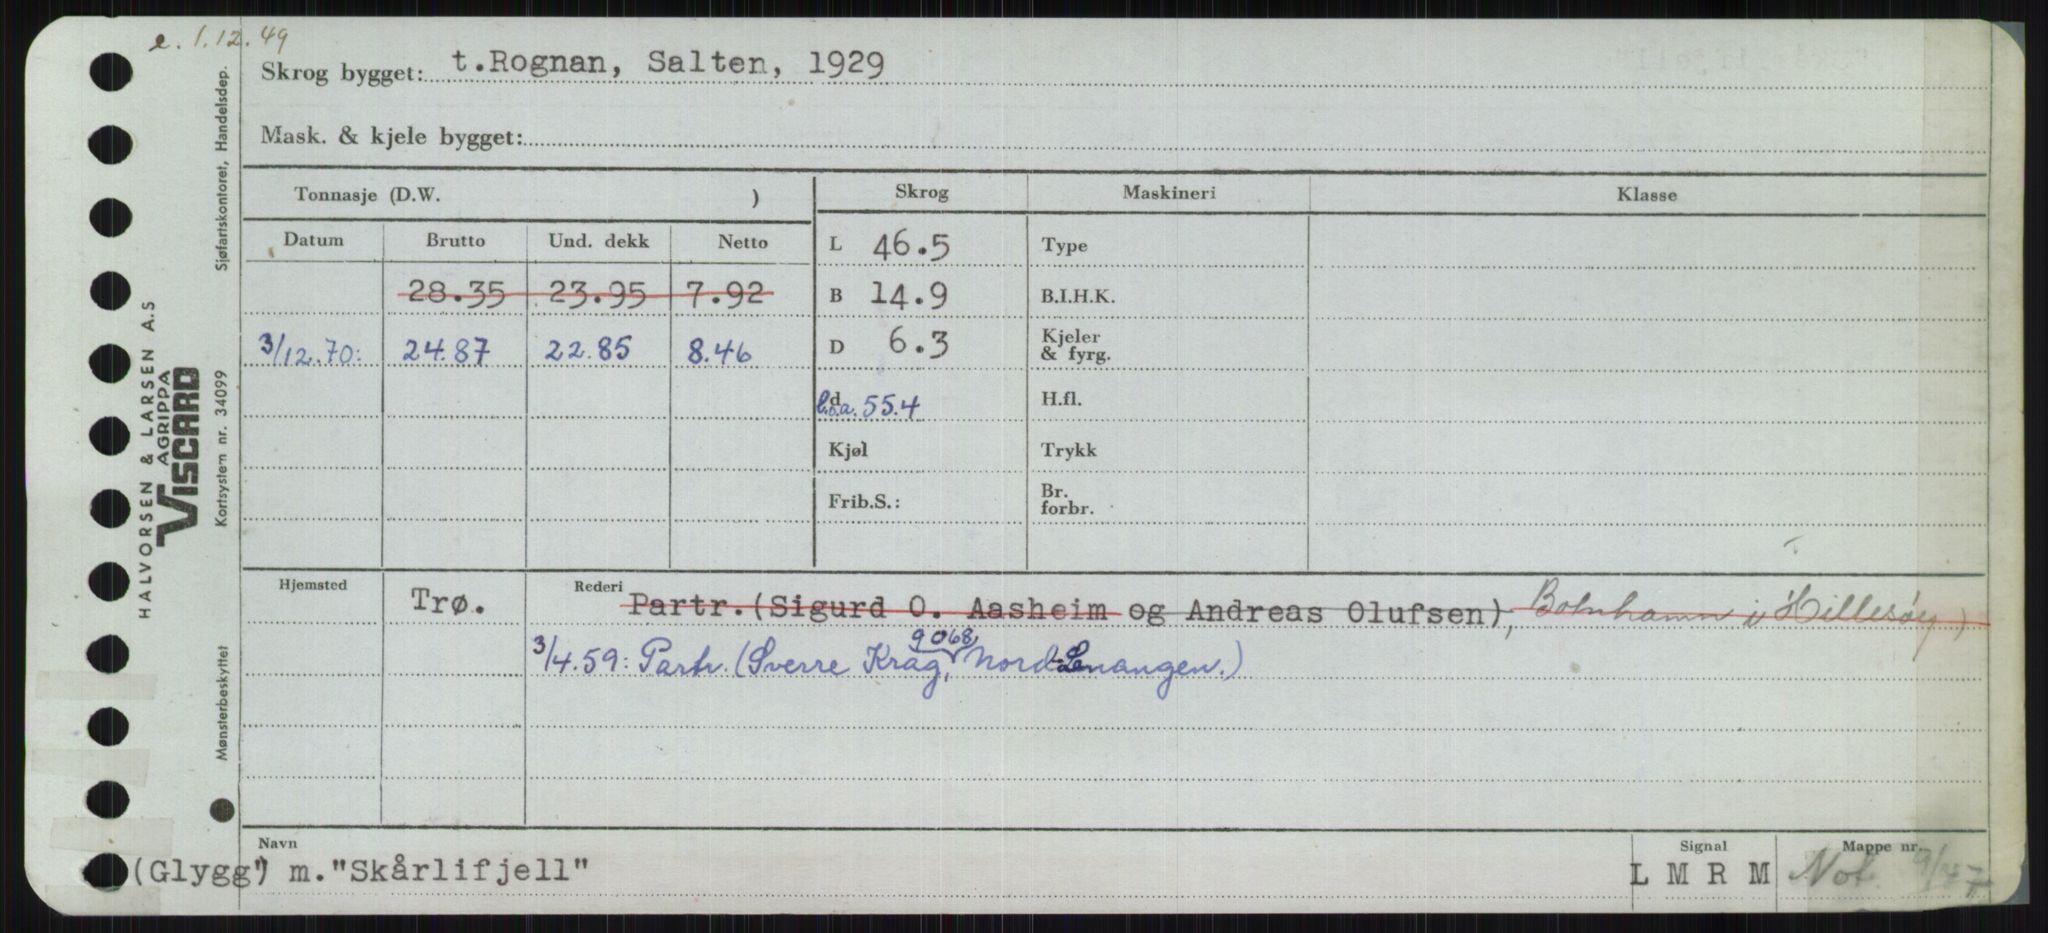 e. 1.12.49
Skrog bygget: t.Rognan, Salten, 1929
Mask. & kjele bygget:
Tonnasje (D.W. ) Skrog Maskineri Klasse
Datum Brutto Und. dekk Netto L 46.5 Type
28.35 23.95 7.92 B 14.9 B.I.H.K.
3/12.70: 24.87 22.85 8.46 D 6.3 Kjeler & fyrg.
d l.o.a. 55.4 H.fl.
Kjøl Trykk
Frib.S.: Br. forbr.
Hjemsted Trø. Rederi Partr.(Sigurd O. Aasheim og Andreas Olufsen), Botnhamn i Hillesøy)
9068
3/4.59: Partr. (Sverre Krag, Nord-Lenangen.)
Navn Signal Mappe nr.
(Glygg") m."Skårlifjell" L M R M Not. 9/47
HALVORSEN & LARSEN A.S
AGRIPPA
VISCARD
Sjøfartskontoret, Handelsdep.
Kortsystem nr. 34099
Mønsterbeskyttet